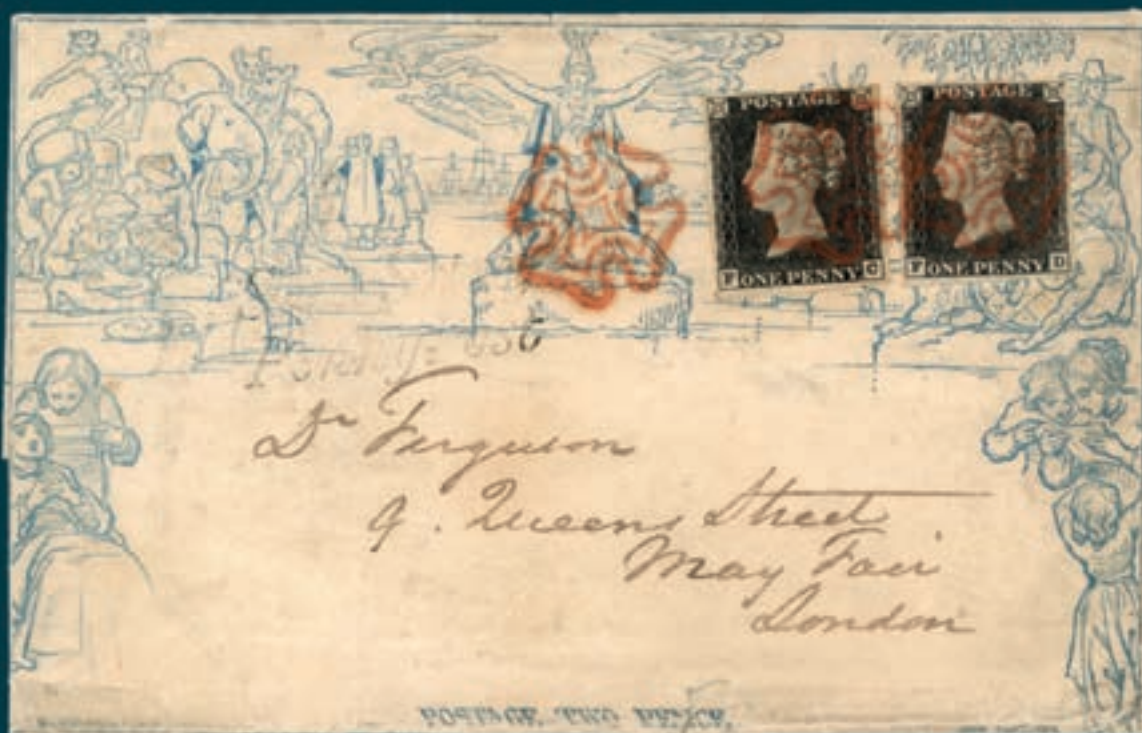 POSTAGE
F ONE PENNY C
POSTAGE
F ONE PENNY D
Dr Ferguson
9. Queens Street
May Fair
London
POSTAGE TWO PENCE